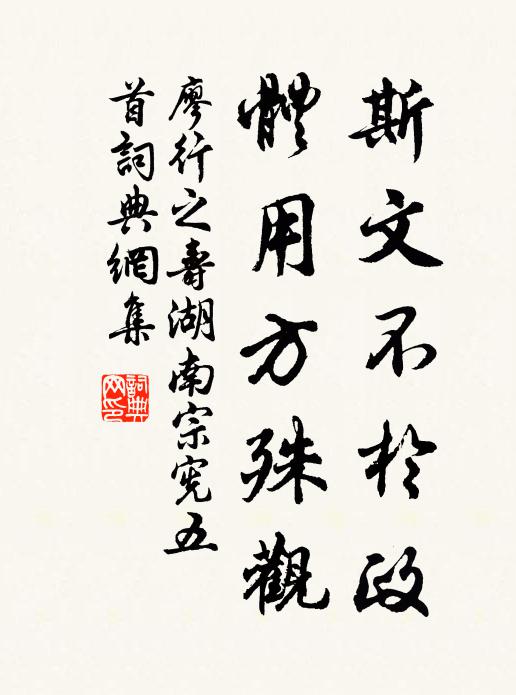 斯文不於政
體用方殊觀
廖行之壽湖南宗憲五
首詞典網集
詞典
网印